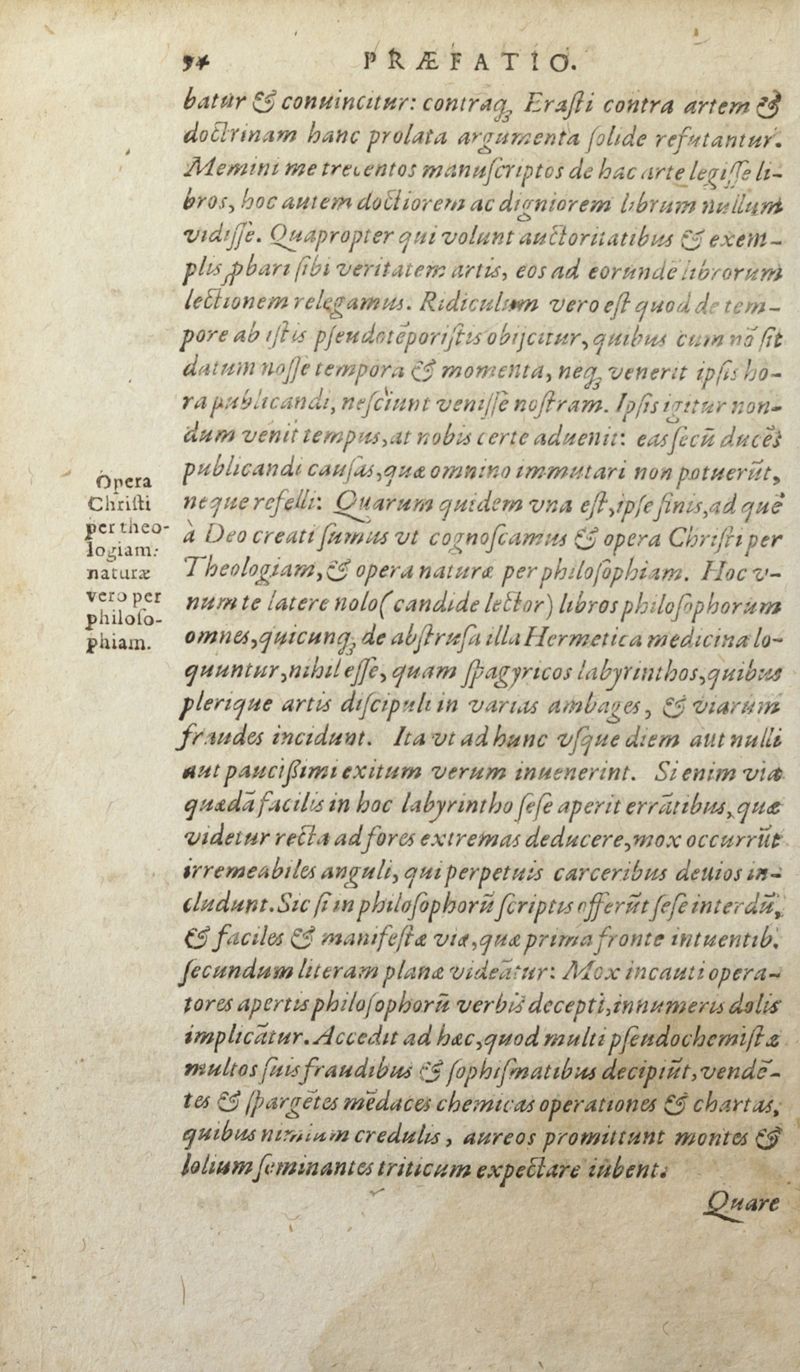 PRÆFATIO.
batur & conuincitur: contraq; Erasti contra artem &
doctrinam hanc prolata argumenta solide refutantur.
Memini me trecentos manuscriptos de hac arte legisse li-
bros, hoc autem doctiorem ac digniorem librum nullum
vidisse. Quapropter qui volunt auctoritatibus & exem-
plis ꝓbari sibi veritatem artis, eos ad eorundē librorum
lectionem relegamus. Ridiculum vero est quod de tem-
pore ab istis pseudotēporistis obijcitur, quibus cum nō sit
datum nosse tempora & momenta, neq; venerit ipsis ho-
ra publicandi, nesciunt venisse nostram. Ipsis igitur non-
dum venit tempus, at nobis certe aduenit: eas secū ducēs
publicandi causas, quæ omnino immutari non potuerūt,
neque refelli: Quarum quidem vna est, ipse finis, ad quē
à Deo creati sumus vt cognoscamus & opera Christi per
Theologiam, & opera naturæ per philosophiam. Hoc v-
num te latere nolo (candide lector) libros philosophorum
omnes, quicunq; de abstrusa illa Hermetica medicina lo-
quuntur, nihil esse, quam spagyricos labyrinthos, quibus
plerique artis discipuli in varias ambages, & viarum
fraudes incidunt. Ita vt ad hunc vsque diem aut nulli
aut paucißimi exitum verum inuenerint. Si enim via
quædā facilis in hoc labyrintho sese aperit errātibus, quæ
videtur recta ad fores extremas deducere, mox occurrūt
irremeabiles anguli, qui perpetuis carceribus deuios in-
cludunt. Sic si in philosophorū scriptis offerūt sese interdū,
& faciles & manifestæ viæ, quæ prima fronte intuentib.
secundum literam planæ videātur: Mox incauti opera-
tores apertis philosophorū verbis decepti, innumeris dolis
implicātur. Accedit ad hæc, quod multi pseudochemistæ
multos suis fraudibus & sophismatibus decipiūt, vendē-
tes & spargētes mēdaces chemicas operationes & chartas,
quibus nimium credulis, aureos promittunt montes &
lolium seminantes triticum expectare iubent.
Quare
Opera
Christi
per theo-
logiam:
naturæ
vero per
philoso-
phiam.